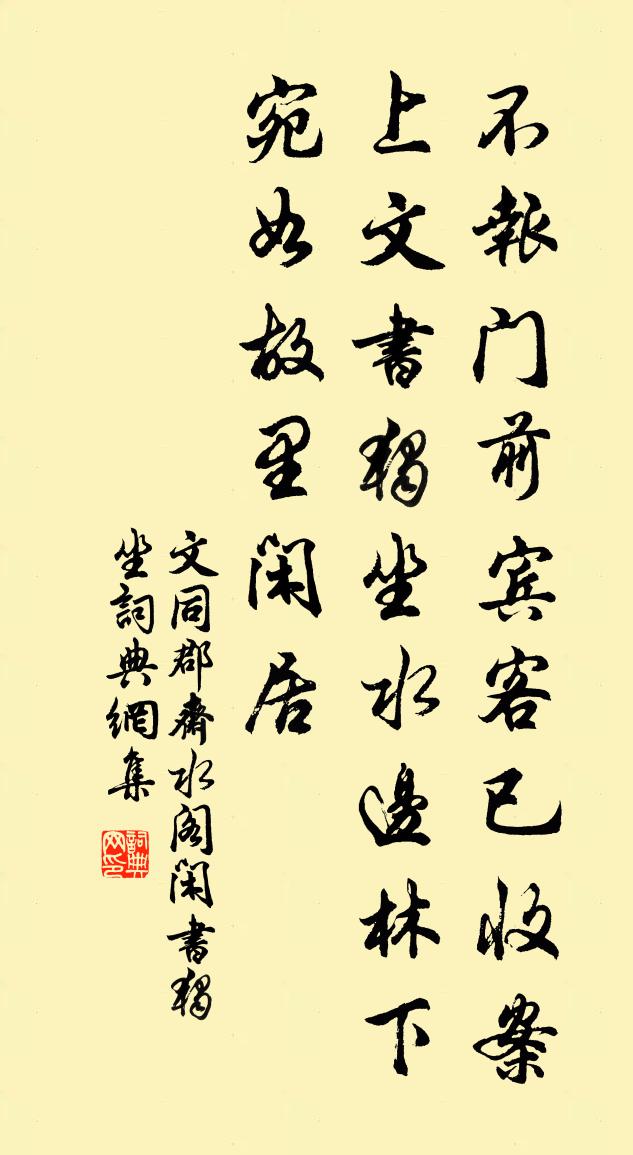 不報门前宾客已收案
上文書獨坐水邊林下
宛如故里闲居
文同郡齋水阁闲書獨
坐詞典網集
詞典网印